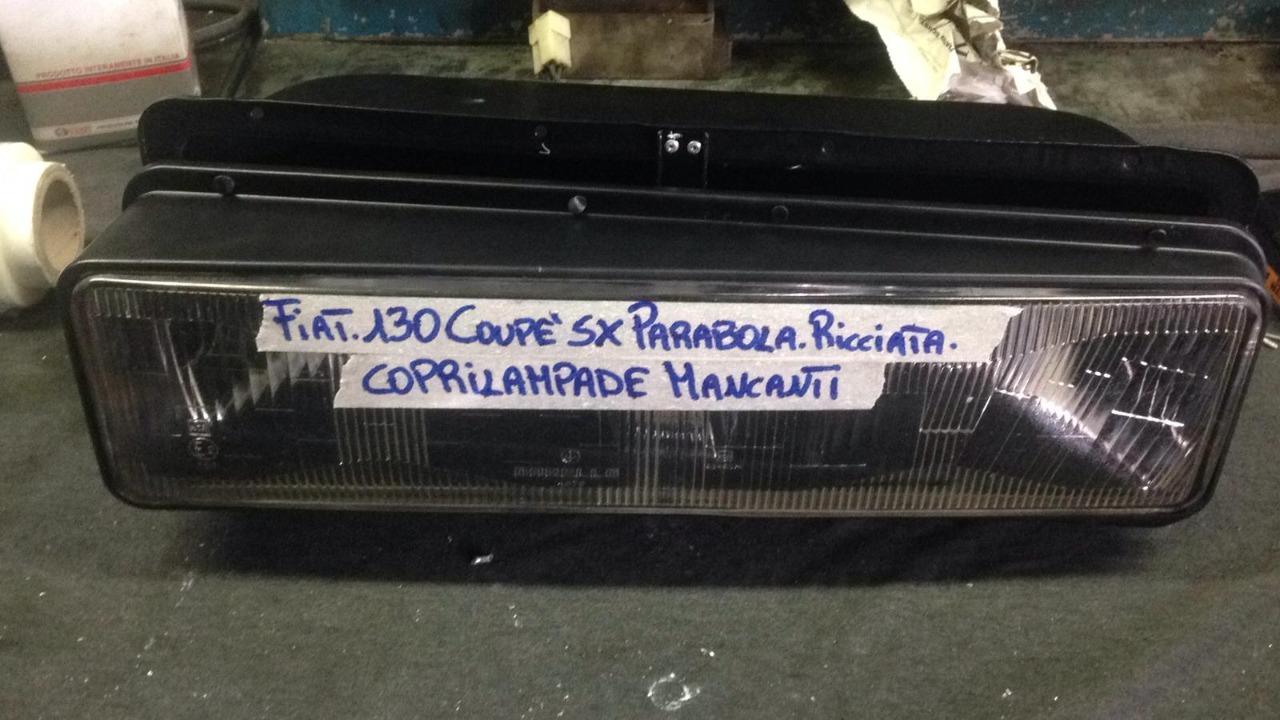 PRODOTTO INTERAMENTE IN ITALIA
FIAT. 130 COUPE' SX PARABOLA. RICCIATA.
COPRILAMPADE MANCANTI